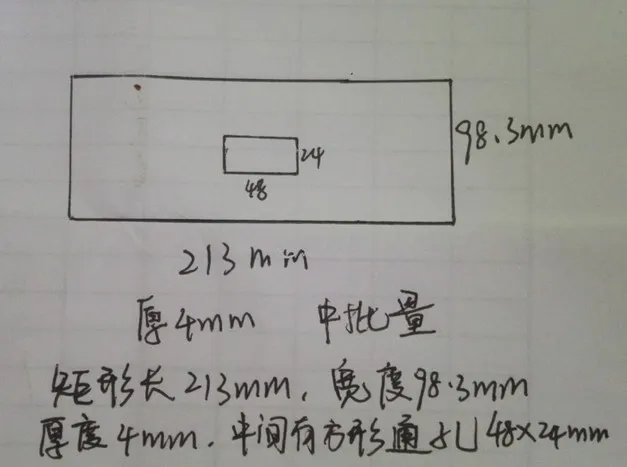 98.3mm
24
48
213mm
厚4mm 中批量
矩形长213mm，宽度98.3mm
厚度4mm．中间有方形通孔48×24mm